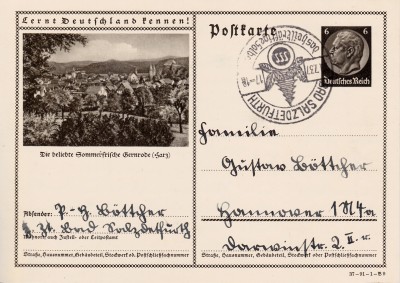 Lernt Deutschland kennen!
Die beliebte Sommerfrische Gernrode (Harz)
Absender: P. G. Böttcher
z. Zt. Bad Salzdetfurth
Wohnort, auch Zustell- oder Leitpostamt
Straße, Hausnummer, Gebäudeteil, Stockwerk od. Postschließfachnummer
Postkarte
BAD SALZDETFURTH
17-18
6 6
Deutsches Reich
Familie
Gustav Böttcher
Hannover 1M4a
Darwinstr. 2. II. r.
Straße, Hausnummer, Gebäudeteil, Stockwerk od. Postschließfachnummer
37-91-1-B9